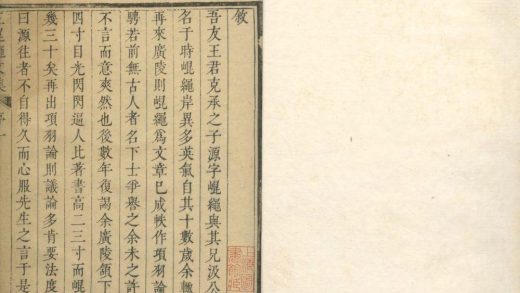 敘
吾友王君克承之子源字崐繩與其兄汲公
名于時崐繩岸異多英氣自其十數歲余輙
再來廣陵則崐繩爲文章已成帙作項羽論
騁若前無古人者名下士爭舉之余未之許
不言而意爽然也後數年復謁余廣陵頷下
四寸目光閃閃逼人比著書高二三寸而崐
幾三十矣再出項羽論則議論多肯要法度
曰源往者不自得久而心服先生之言于是